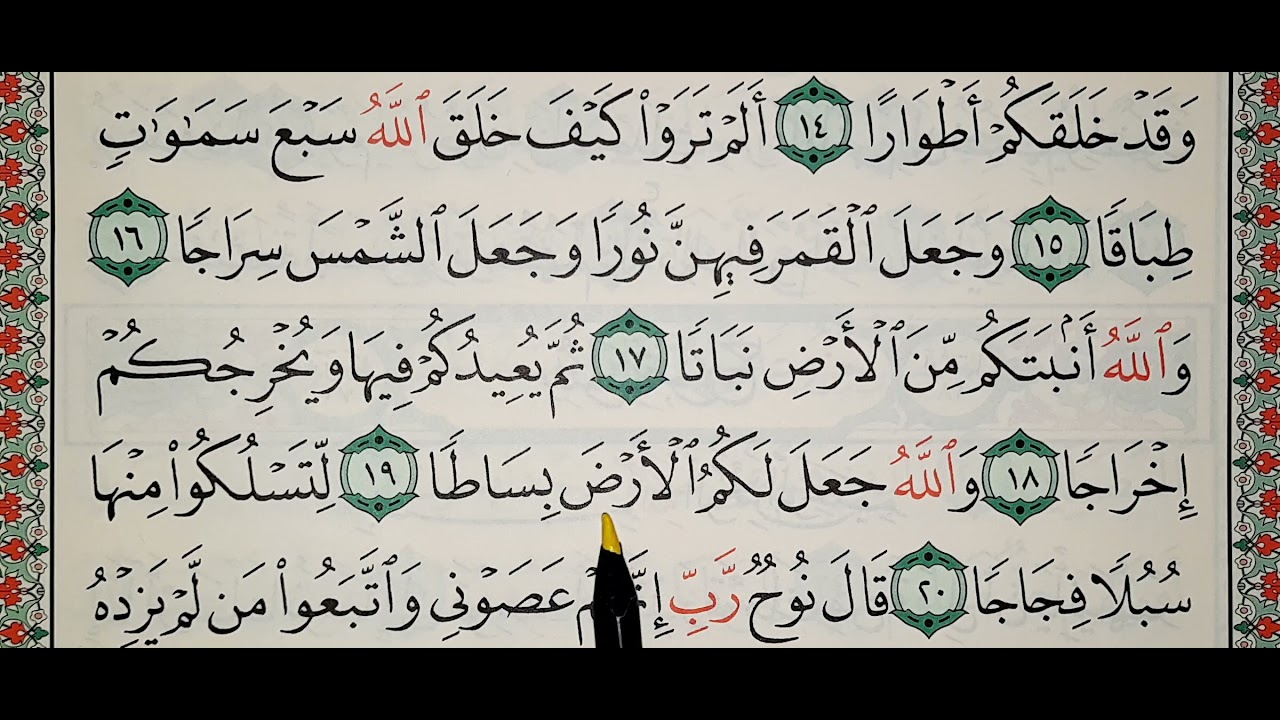 وَقَدۡ خَلَقَكُمۡ أَطۡوَارًا ١٤ أَلَمۡ تَرَوۡاْ كَيۡفَ خَلَقَ ٱللَّهُ سَبۡعَ سَمَٰوَٰتٖ
طِبَاقٗا ١٥ وَجَعَلَ ٱلۡقَمَرَ فِيهِنَّ نُورٗا وَجَعَلَ ٱلشَّمۡسَ سِرَاجٗا ١٦
وَٱللَّهُ أَنۢبَتَكُم مِّنَ ٱلۡأَرۡضِ نَبَاتٗا ١٧ ثُمَّ يُعِيدُكُمۡ فِيهَا وَيُخۡرِجُكُمۡ
إِخۡرَاجٗا ١٨ وَٱللَّهُ جَعَلَ لَكُمُ ٱلۡأَرۡضَ بِسَاطٗا ١٩ لِّتَسۡلُكُواْ مِنۡهَا
سُبُلٗا فِجَاجٗا ٢٠ قَالَ نُوحٞ رَّبِّ عَصَوۡنِي وَٱتَّبَعُواْ مَن لَّمۡ يَزِدۡهُ